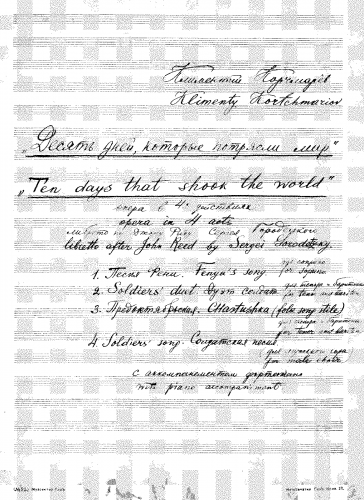 Климентий Корчмарёв
Klimenty Kortchmariov
„Десять дней, которые потрясли мир"
„Ten days that shook the world"
опера в 4х действиях
opera in 4 acts
либретто по Джону Риду Сергея Городецкого
libretto after John Reed by Sergei Gorodetzky.
1. Песня Fenya's song для сопрано
for Soprano
2. Soldiers' duet Дуэт солдат для тенора и баритона
for Tenor and bariton
3. Предоктябрьская. Chastushka (folk song stile) для тенора и баритона
for tenor and bariton
4 Soldiers' song. Солдатская песня для мужского хора
for male choir
с аккомпанементом фортепиано
with piano accompaniment.